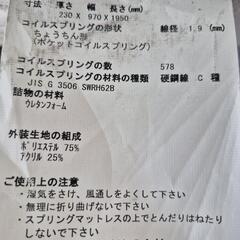 寸法 厚さ 幅 長さ(mm)
230 X 970 X 1950
コイルスプリングの形状 線径 1.9 (mm)
ちょうちん形
(ポケットコイルスプリング)
コイルスプリングの数 578
コイルスプリングの材料の種類 硬鋼線 C 種
JIS G 3506 SWRH62B
詰物の材料
ウレタンフォーム
外装生地の組成
ポリエステル 75%
アクリル 25%
ご使用上の注意
・湿気をさけ、風通しをよくして下さい
・無理に折り曲げないで下さい
・スプリングマットレスの上でとんだりはねたり
しないで下さい